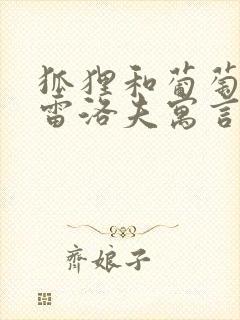 狐狸和葡萄
雷洛夫寓言
齐娘子